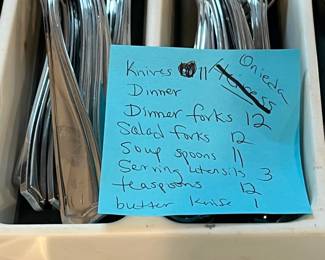 Knives 11
Oneida
Dinner
Dinner forks 12
Salad forks 12
Soup spoons 11
Serving utensils 3
teaspoons 12
butter knife 1